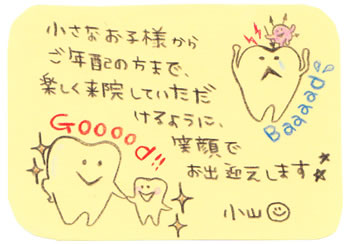 小さなお子様から
ご年配の方まで、
楽しく来院していただ
けるように、
笑顔で
お出迎えします
小山
Gooood!!
Baaaad